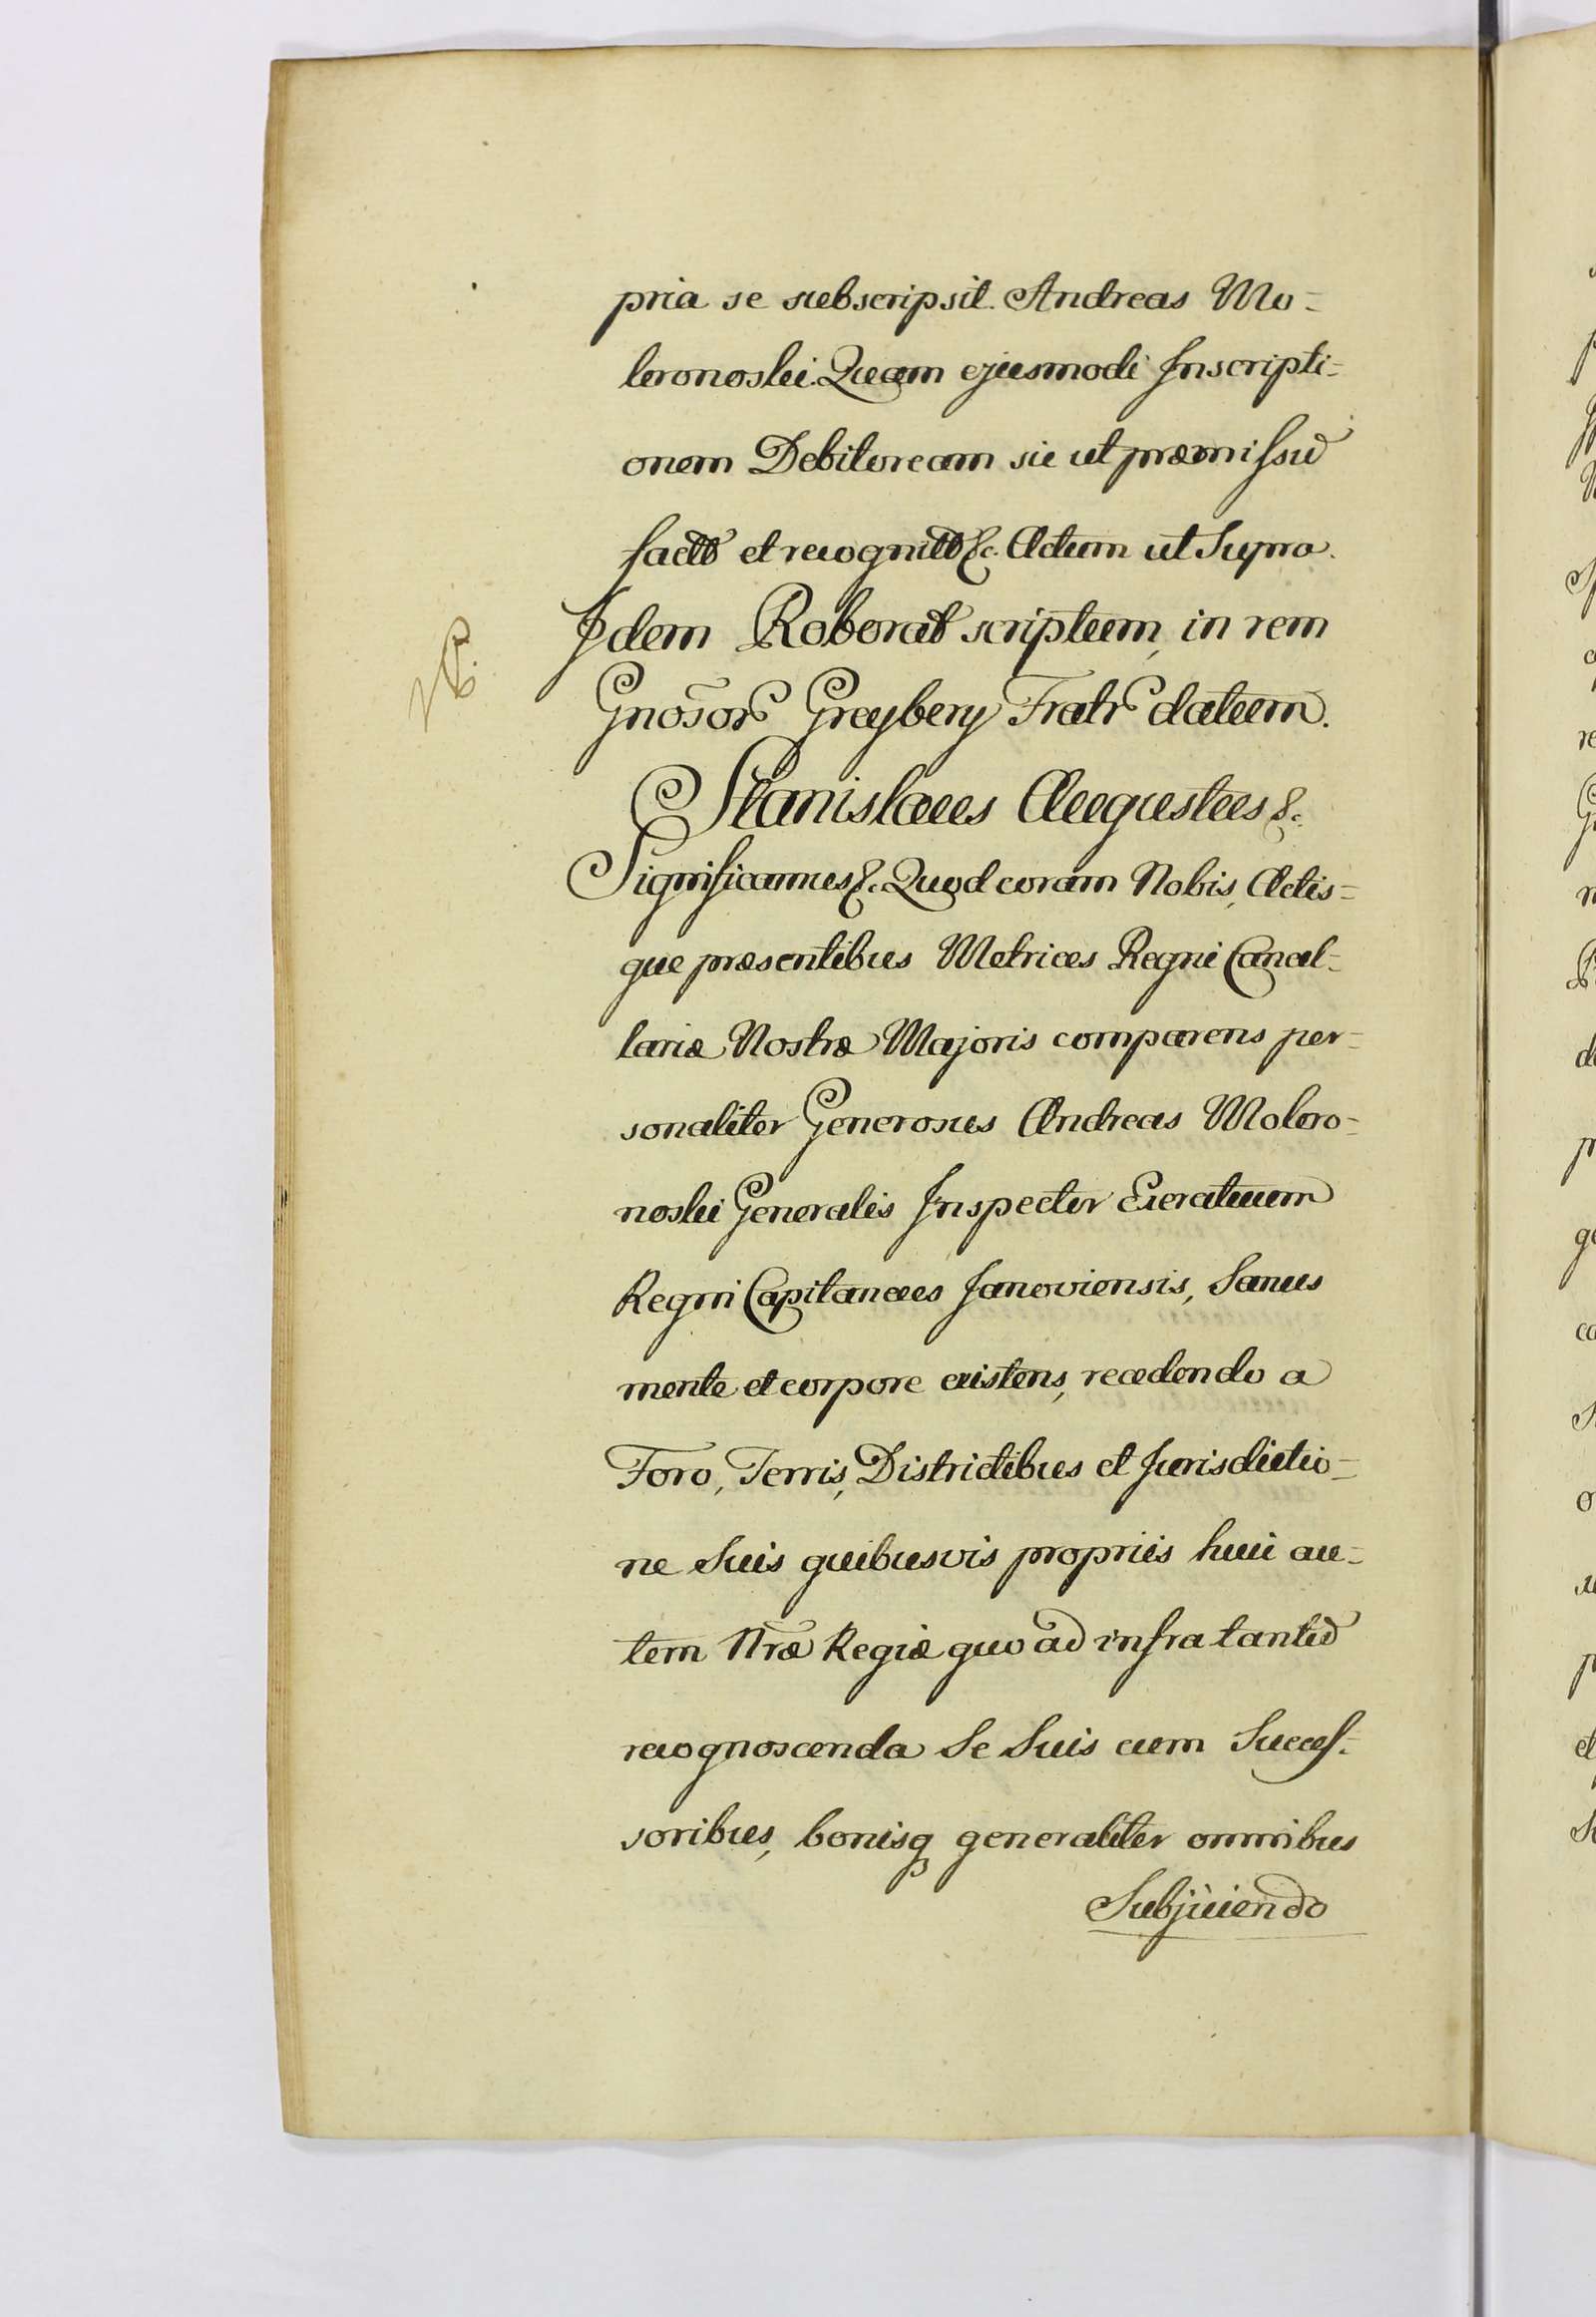 pria se subscripsit. Andreas Mo=
kronoski. Quam ejusmodi Inscripti=
onem Debitoream sic ut præmissũ
factã et recognitã &c. Actum ut Supra.
Idem Roborat scriptum, in rem
Gnõsor Greybery Fratr datum.
Stanislaus Augustus &c.
Significamus &c. Quod coram Nobis, Actis=
que præsentibus Metrices Regni Cancel=
lariæ Nostræ Majoris comparens per=
sonaliter Generosus Andreas Mokro=
noski Generalis Inspector Exercituum
Regni Capitaneus Janoviensis, Sanus
mente et corpore existens, recedendo a
Foro, Terris, Districtibus et Jurisdictio=
ne Suis quibusvis propriis huic au=
tem Nrã Regiæ quo ad infra tantũ
recognoscenda Se Suis cum Succes=
soribus, bonisq generaliter omnibus
Subjiciendo